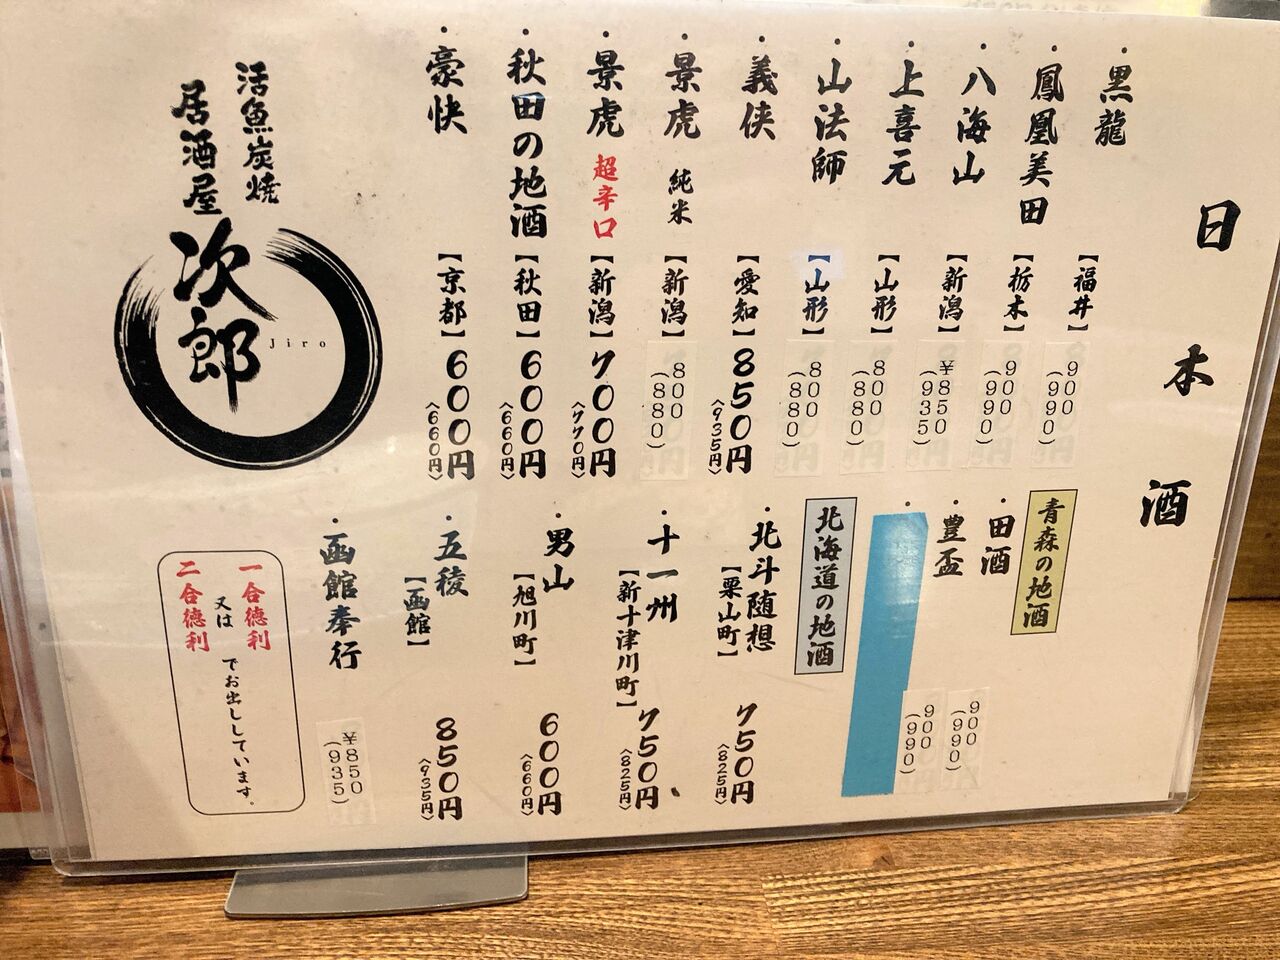 日本酒
・黒龍【福井】900(990)
・鳳凰美田【栃木】900(990)
・八海山【新潟】¥850(935)
・上喜元【山形】800(880)
・山法師【山形】800(880)
・義侠【愛知】850円〈935円〉
・景虎 純米【新潟】800(880)
・景虎 超辛口【新潟】700円〈770円〉
・秋田の地酒【秋田】600円〈660円〉
・豪快【京都】600円〈660円〉
青森の地酒
・田酒 900(990)
・豊盃 900(990)
北海道の地酒
・北斗随想【栗山町】750円〈825円〉
・十一州【新十津川町】750円〈825円〉
・男山【旭川町】600円〈660円〉
・五稜【函館】850円〈935円〉
・函館奉行 ¥850(935)
活魚炭焼
居酒屋
次郎
Jiro
一合徳利
又は
二合徳利
でお出ししています。